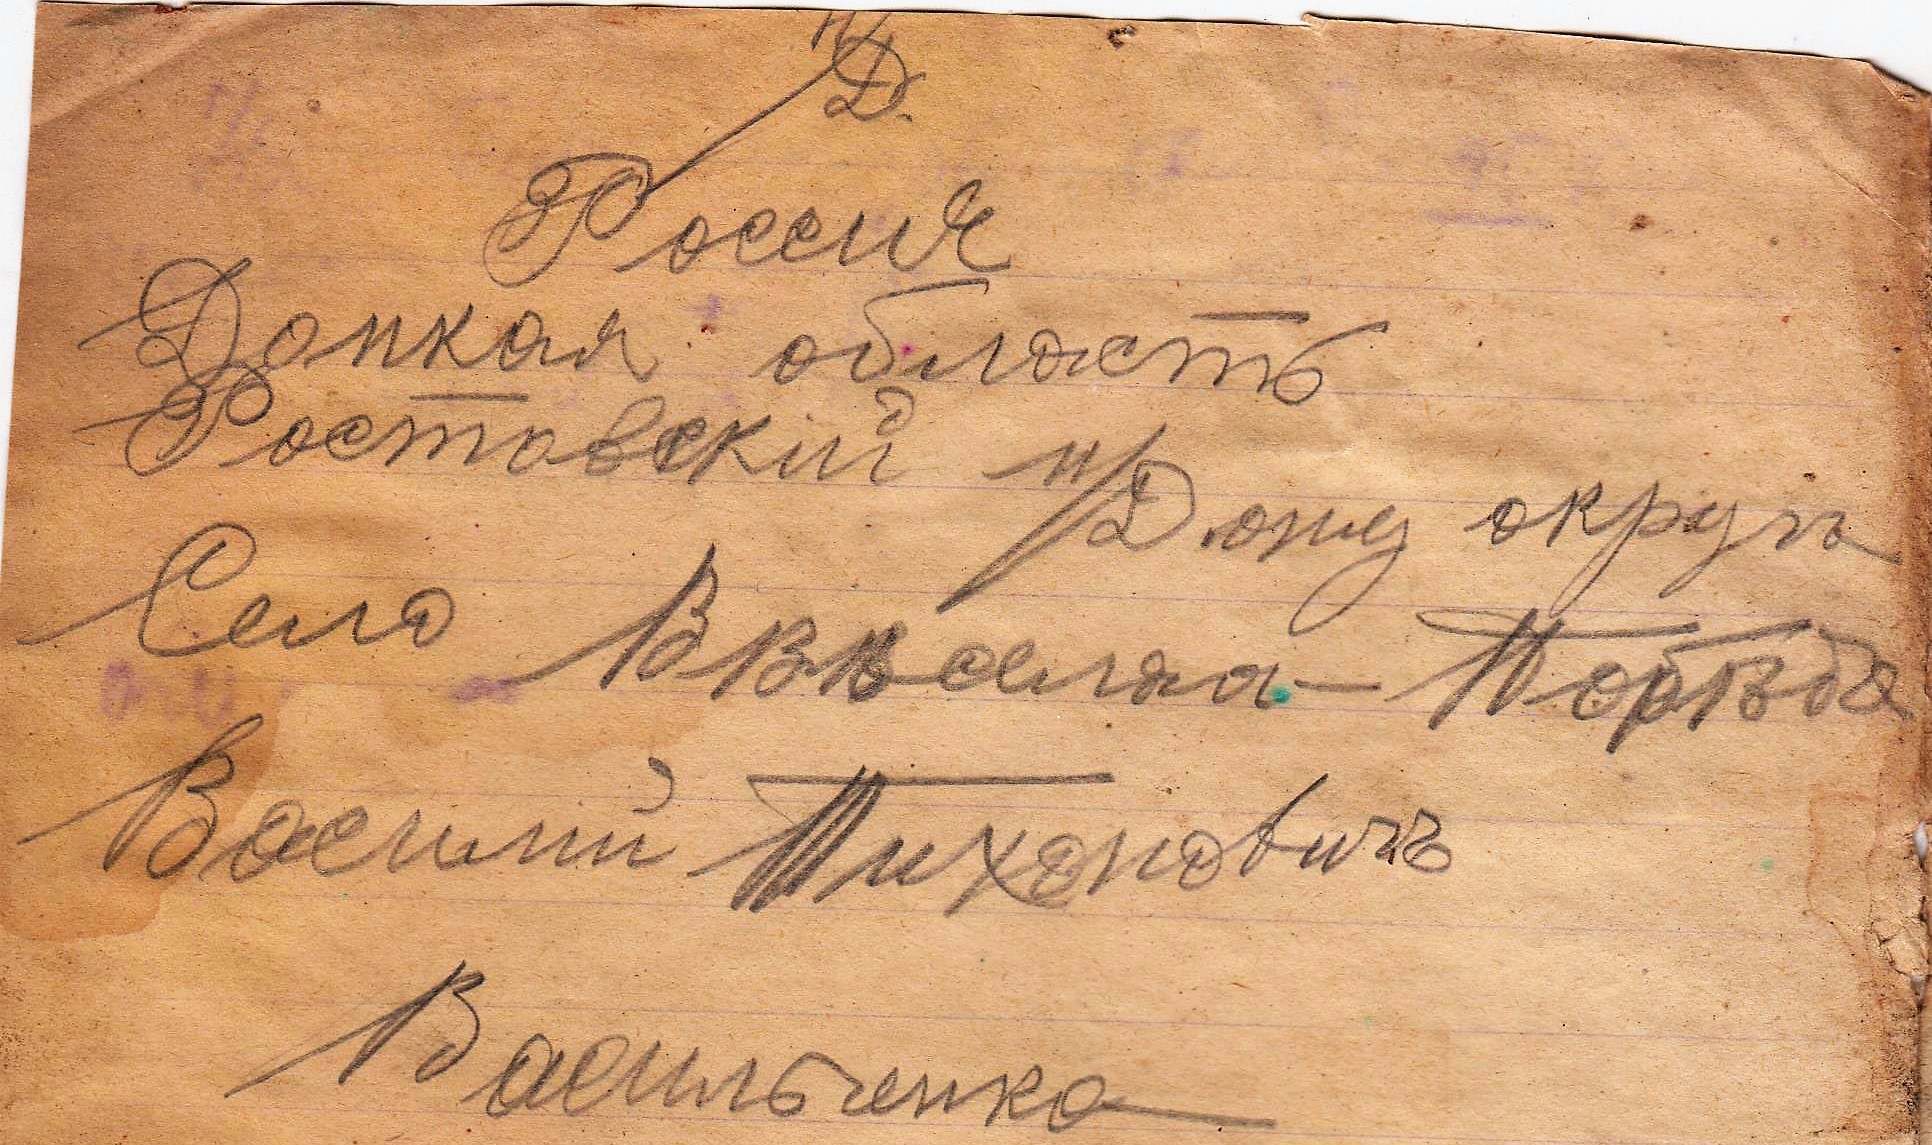 н/Д.
Россия
Донкая область
Ростовский н/Дону округъ
Село
Василий Тихоновичъ
Васильченко